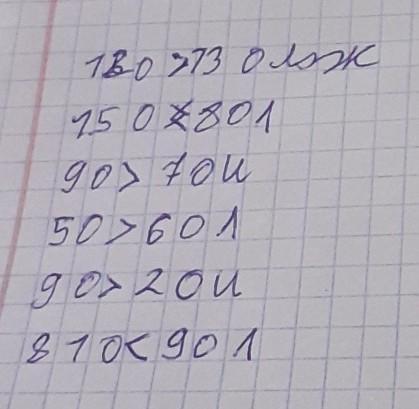 120 > 130 лож
150 < 80 л
90 > 70 и
50 > 60 л
90 > 20 и
810 < 90 л